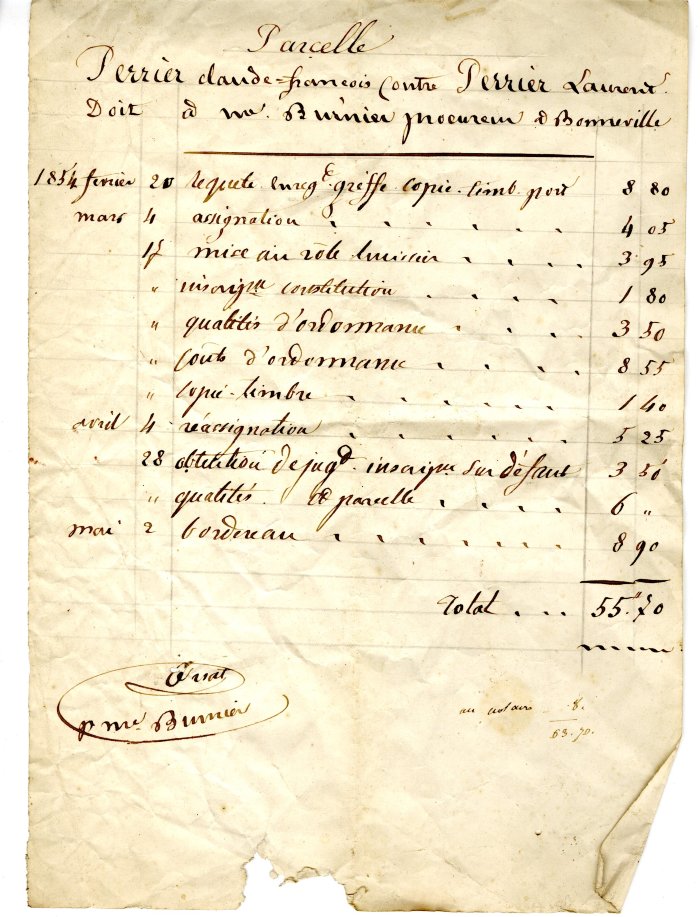 Parcelle
Perrier claude=françois Contre Perrier Laurent.
Doit à me. Burnier procureur à Bonneville
1854 février 20 requete enregé. greffe. copie. timb. port 8 80
mars 4 assignation " " " " " " 4 05
17 mise au rôle huissier " " " " 3 95
" inscripon constitution " " " " 1 80
" qualités d'ordonnance " " " " 3 50
" couts d'ordonnance " " " " 8 55
" copie. timbre " " " " " " 1 40
avril 4 réassignation " " " " " " 5 25
28 obtention de jugt. inscripon sur défaut 3 50
" qualités. et parcelle " " " " 6 "
mai 2 bordereau " " " " " " 8 90
Total . . . 55." 70
p me. Burnier
au notaire _ 8.
63. 70.